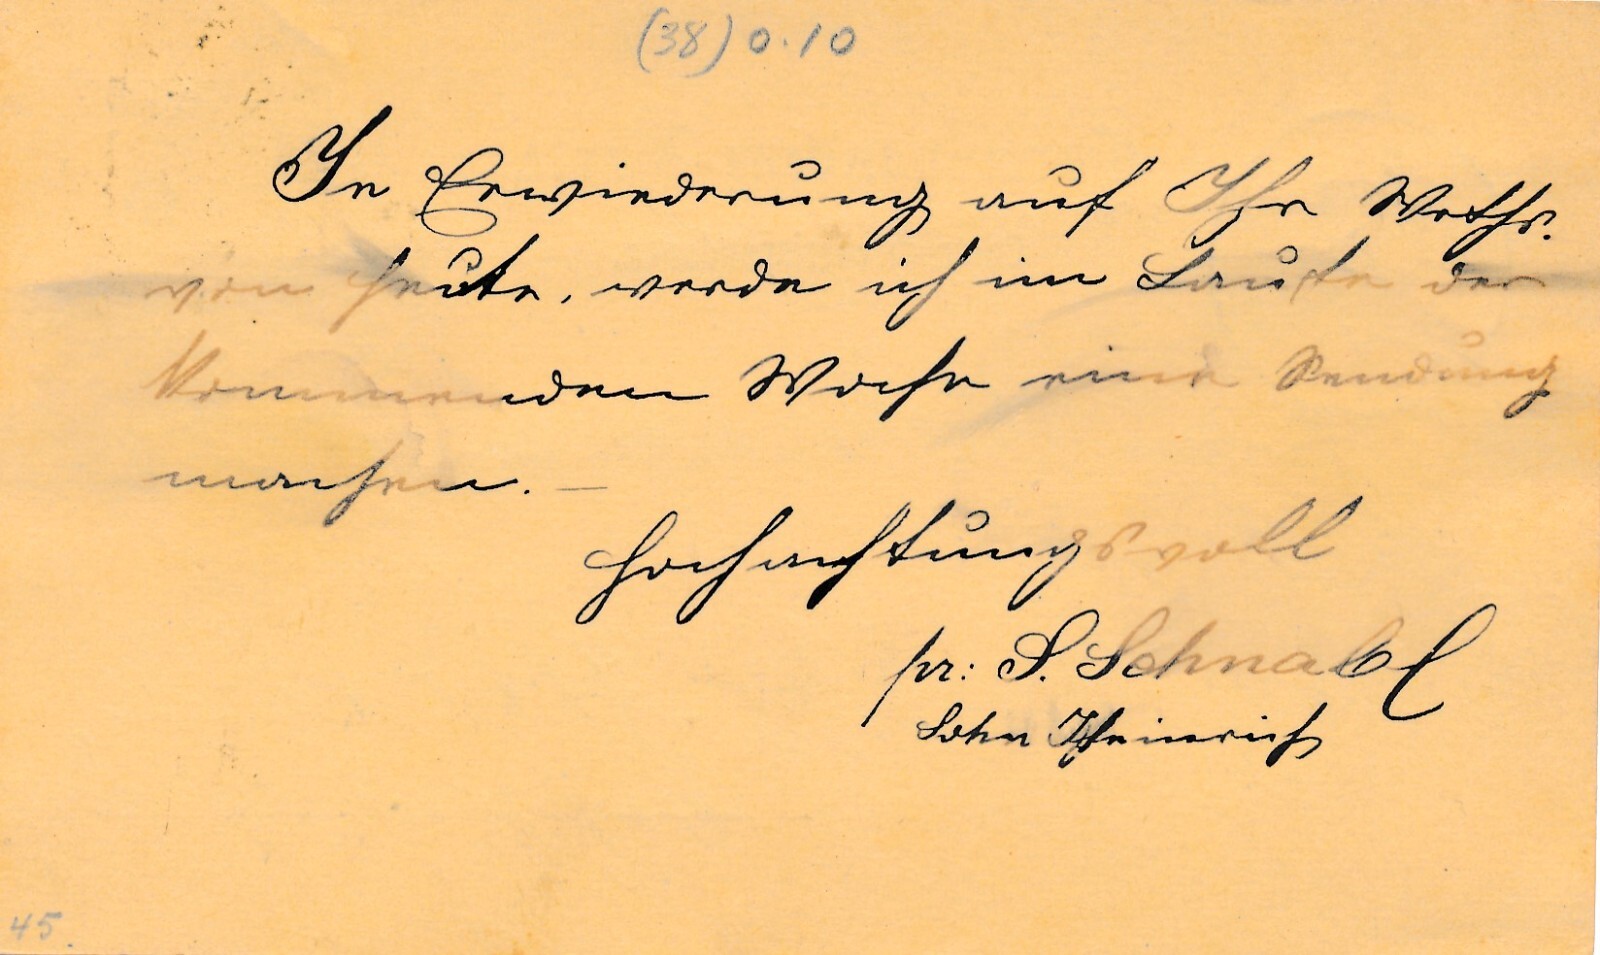 (38) 0.10
In Erwiederung auf Ihr Werthes.
von heute, werde ich im Laufe der
kommenden Woche eine Sendung
machen. —
Hochachtungsvoll
pr: S. Schnabel
Sohn Heinrich
45.